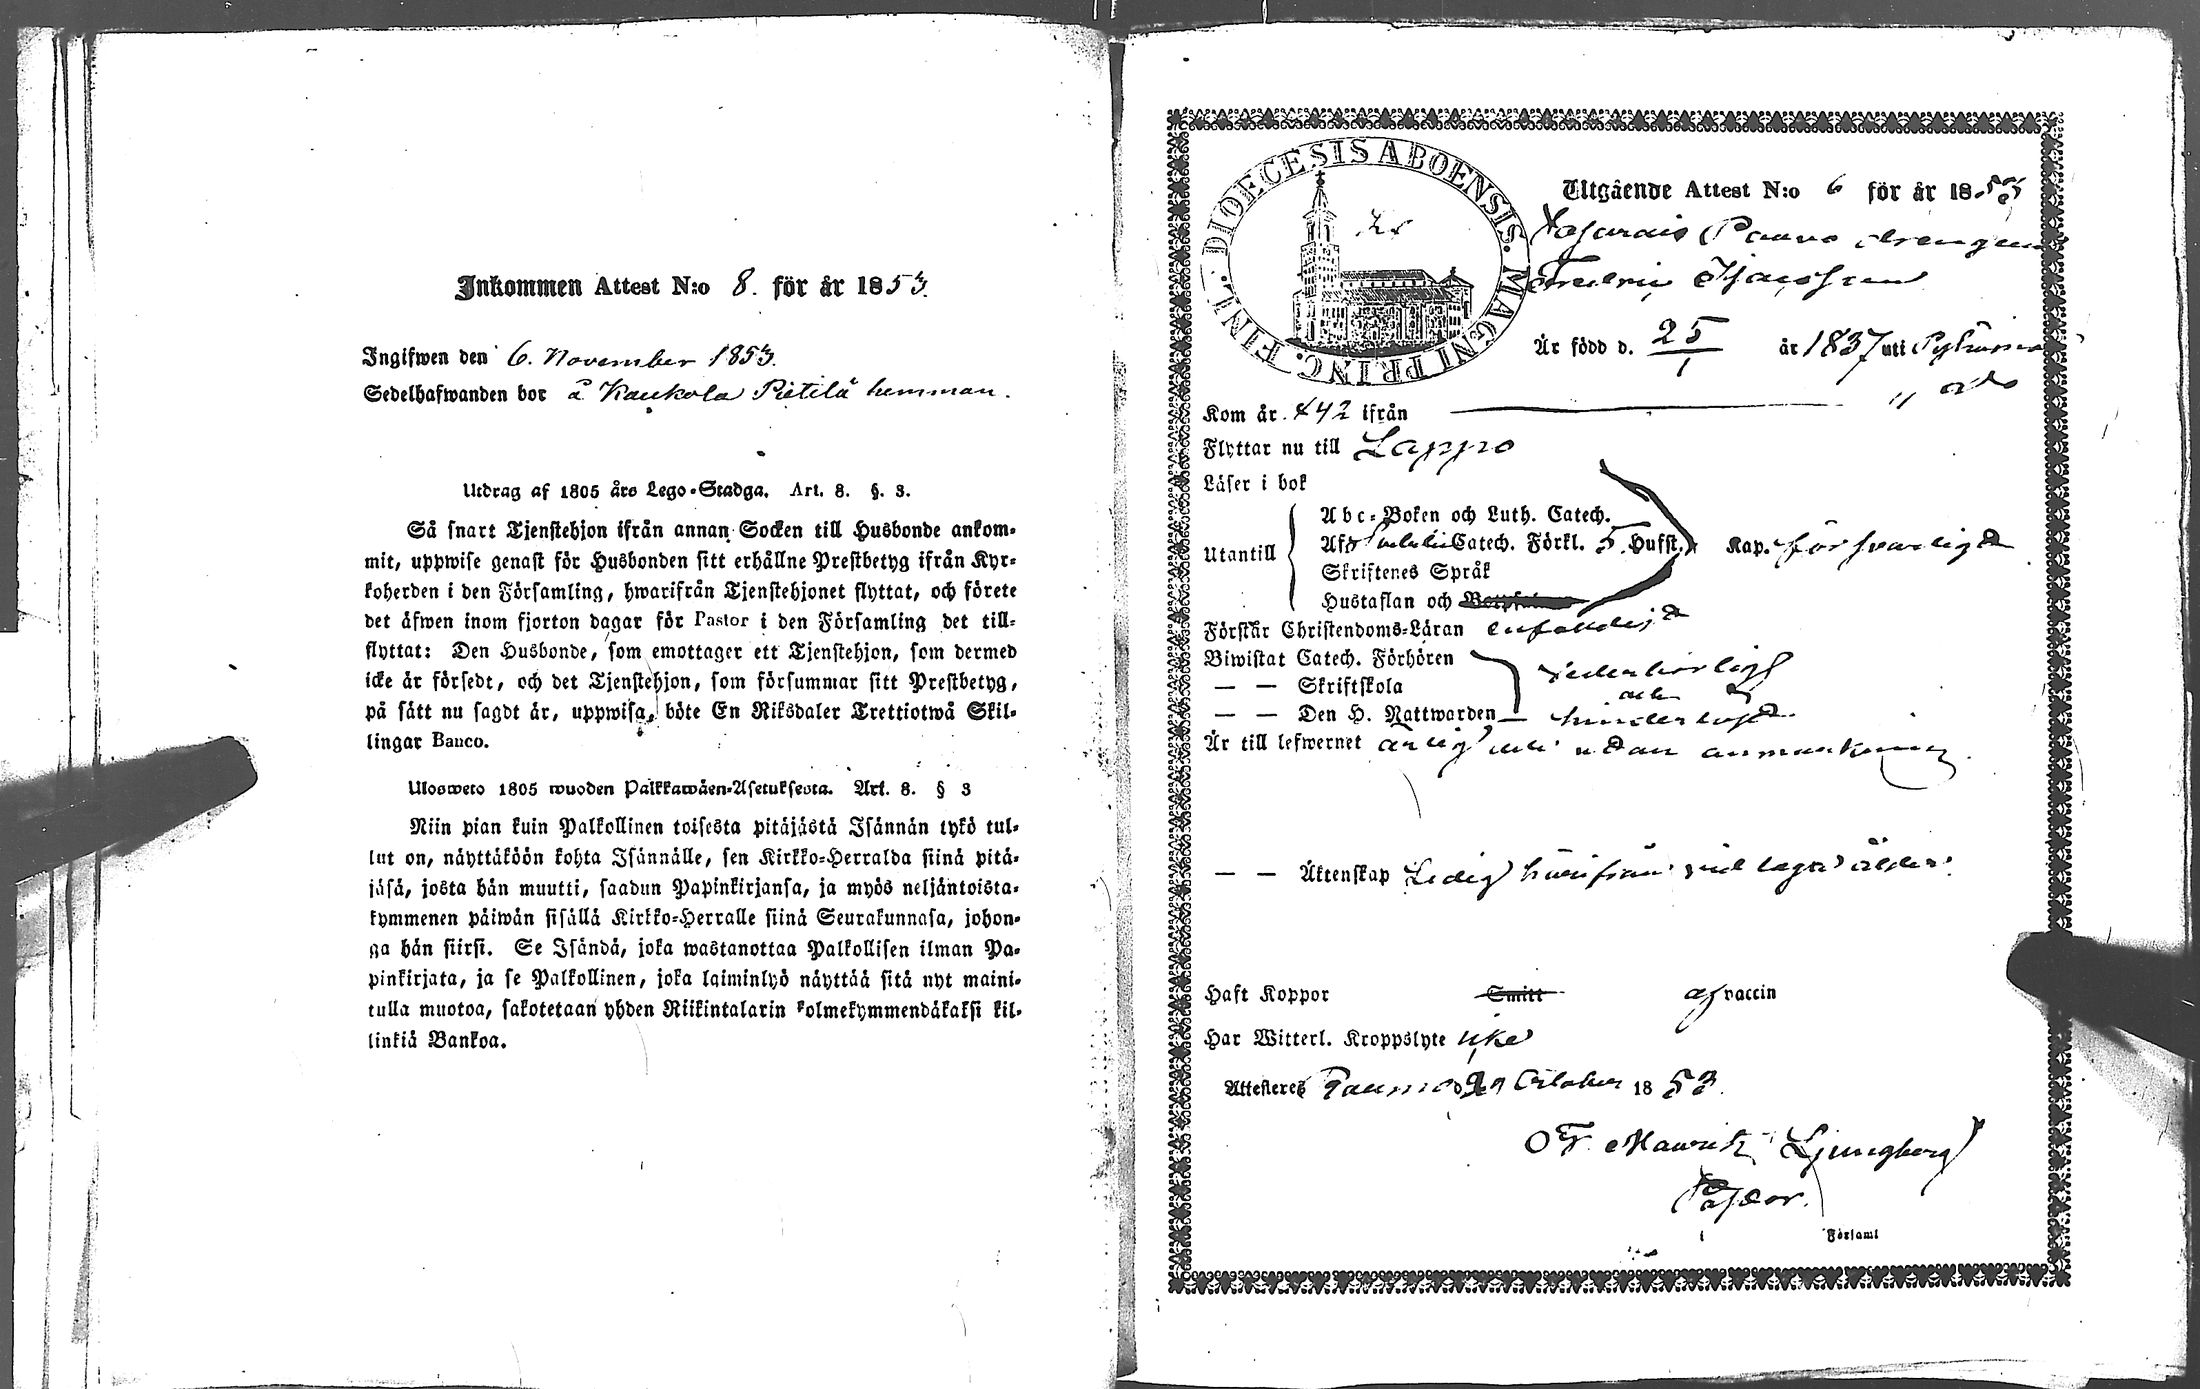 Inkommen Attest N:o 8. för år 1853.
Ingifwen den 6. November 1853.
Sedelhafwanden bor å Kaukola Pietilä hemman.
Utdrag af 1805 års Lego-Stadga. Art. 8. §. 3.
Så snart Tjenstehjon ifrån annan Socken till Husbonde ankom-
mit, uppwise genast för Husbonden sitt erhållne Prestbetyg ifrån Kyr-
koherden i den Församling, hwarifrån Tjenstehjonet flyttat, och förete
det äfwen inom fjorton dagar för Pastor i den Församling det till-
flyttat: Den Husbonde, som emottager ett Tjenstehjon, som dermed
icke är försedt, och det Tjenstehjon, som försummar sitt Prestbetyg,
på sätt nu sagdt är, uppwisa, böte En Riksdaler Trettiotwå Skil-
lingar Banco.
Ulosweto 1805 wuoden Palkkawäen-Asetuksesta. Art. 8. § 3
Niin pian kuin Palkollinen toisesta pitäjästä Isännän tykö tul-
lut on, näyttäköön kohta Isännälle, sen Kirkko-Herralda siinä pitä-
jäsä, josta hän muutti, saadun Papinkirjansa, ja myös neljäntoista-
kymmenen päiwän sisällä Kirkko-Herralle siinä Seurakunnasa, johon-
ga hän siirsi. Se Isändä, joka wastanottaa Palkollisen ilman Pa-
pinkirjata, ja se Palkollinen, joka laiminlyö näyttää sitä nyt maini-
tulla muotoa, sakotetaan yhden Riikintalarin kolmekymmendäkaksi kil-
linkiä Bankoa.
DIOECESIS ABOENSIS. MAGNI PRINC. FINL.
Utgående Attest N:o 6 för år 1853
Paavo drengen
Fredric
Är född d. 25/1 år 1837 uti
Kom år 842 ifrån
Flyttar nu till Lappo
Läser i bok
Utantill
Abc-Boken och Luth. Catech.
Afs Catech. Förkl. 5 Hufst. Kap. försvarligt
Skriftenes Språk
Hustaflan och
Förstår Christendoms-Läran enfaldigt
Biwistat Catech. Förhören
— — Skriftskola
och
— — Den H. Nattwarden
Är till lefwernet ärlig och utan anmärkning
— — Äktenskap Ledig härifrån vid laga ålder
Haft Koppor Smitt af vaccin
Har Witterl. Kroppslyte icke
Attesteres Raumo d 29 October 1853.
Mauritz Ljungberg
Pastor.
Församl